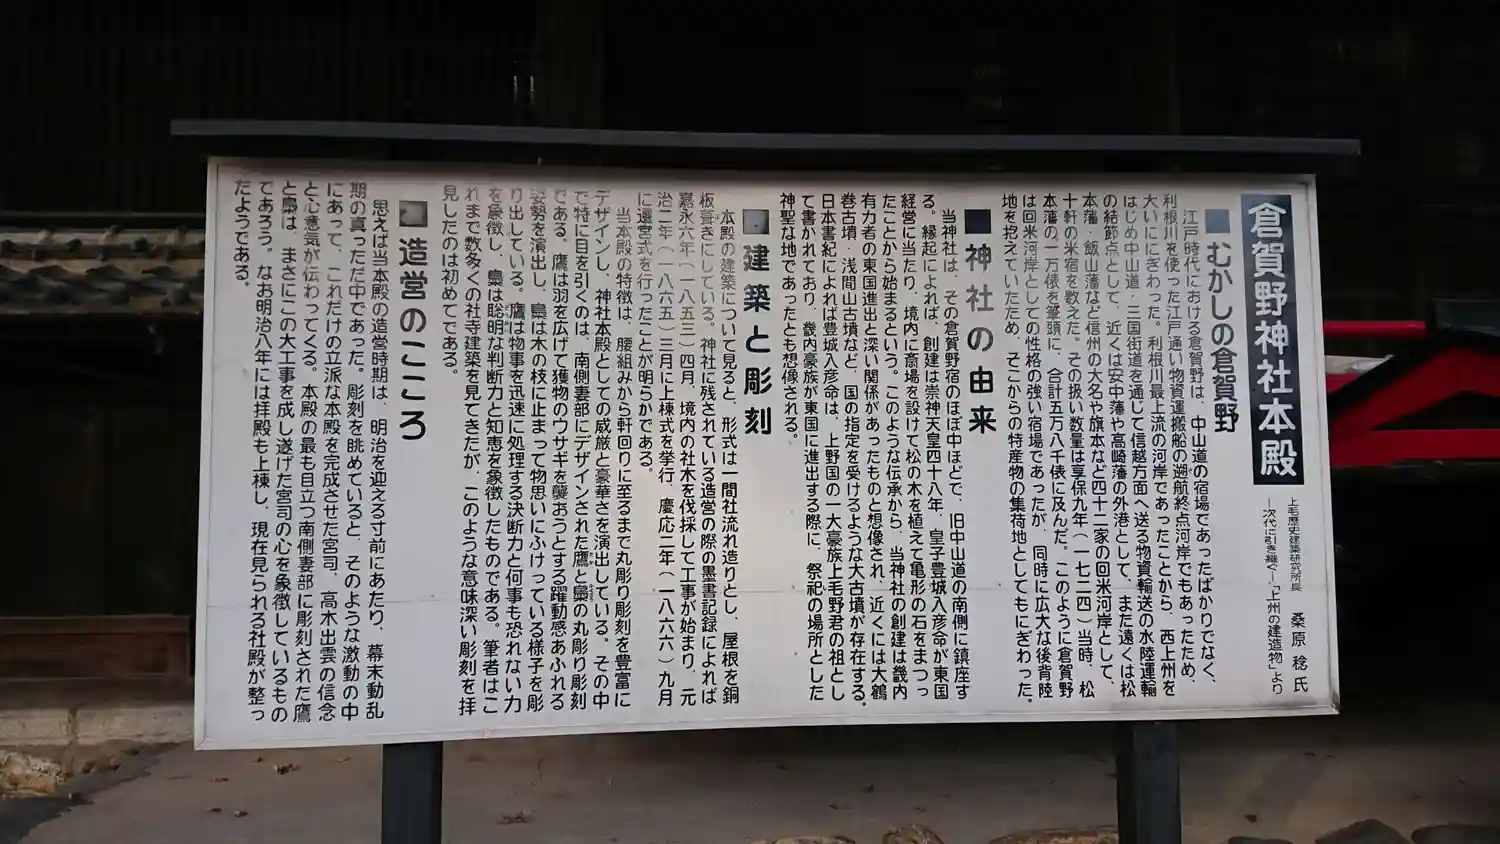 倉賀野神社本殿
上毛歴史建築研究所長 桑原稔氏
―次代に引き継ぐ―「上州の建造物」より
■むかしの倉賀野
江戸時代における倉賀野は、中山道の宿場であったばかりでなく、
利根川を使った江戸通い物資運搬船の遡航終点河岸でもあったため、
大いににぎわった。利根川最上流の河岸であったことから、西上州を
はじめ中山道・三国街道を通じて信越方面へ送る物資輸送の水陸運輸
の結節点として、近くは安中藩や高崎藩の外港として、また遠くは松
本藩・飯山藩など信州の大名や旗本など四十二家の回米河岸として、
十軒の米宿を数えた。その扱い数量は享保九年(一七二四)当時、松
本藩の一万俵を筆頭に、合計五万八千俵に及んだ。このように倉賀野
は回米河岸としての性格の強い宿場であったが、同時に広大な後背陸
地を抱えていたため、そこからの特産物の集荷地としてもにぎわった。
■神社の由来
当神社は、その倉賀野宿のほぼ中ほどで、旧中山道の南側に鎮座す
る。縁起によれば、創建は崇神天皇四十八年、皇子豊城入彦命が東国
経営に当たり、境内に斎場を設けて松の木を植えて亀形の石をまつっ
たことから始まるという。このような伝承から、当神社の創建は畿内
有力者の東国進出と深い関係があったものと想像され、近くには大鶴
巻古墳・浅間山古墳など、国の指定を受けるような大古墳が存在する。
日本書紀によれば豊城入彦命は、上野国の一大豪族上毛野君の祖とし
て書かれており、畿内豪族が東国に進出する際に、祭祀の場所とした
神聖な地であったとも想像される。
■建築と彫刻
本殿の建築について見ると、形式は一間社流れ造りとし、屋根を銅
板葺きにしている。神社に残されている造営の際の墨書記録によれば
嘉永六年(一八五三)四月、境内の社木を伐採して工事が始まり、元
治二年(一八六五)三月に上棟式を挙行、慶応二年(一八六六)九月
に遷宮式を行ったことが明らかである。
当本殿の特徴は、腰組みから軒回りに至るまで丸彫り彫刻を豊富に
デザインし、神社本殿としての威厳と豪華さを演出している。その中
で特に目を引くのは、南側妻部にデザインされた鷹と梟の丸彫り彫刻
である。鷹は羽を広げて獲物のウサギを襲おうとする躍動感あふれる
姿勢を演出し、梟は木の枝に止まって物思いにふけっている様子を彫
り出している。鷹は物事を迅速に処理する決断力と何事も恐れない力
を象徴し、梟は聡明な判断力と知恵を象徴したものである。筆者はこ
れまで数多くの社寺建築を見てきたが、このような意味深い彫刻を拝
見したのは初めてである。
■造営のこころ
思えば当本殿の造営時期は、明治を迎える寸前にあたり、幕末動乱
期の真っただ中であった。彫刻を眺めていると、そのような激動の中
にあって、これだけの立派な本殿を完成させた宮司、高木出雲の信念
と心意気が伝わってくる。本殿の最も目立つ南側妻部に彫刻された鷹
と梟は、まさにこの大工事を成し遂げた宮司の心を象徴しているもの
であろう。なお明治八年には拝殿も上棟し、現在見られる社殿が整っ
たようである。